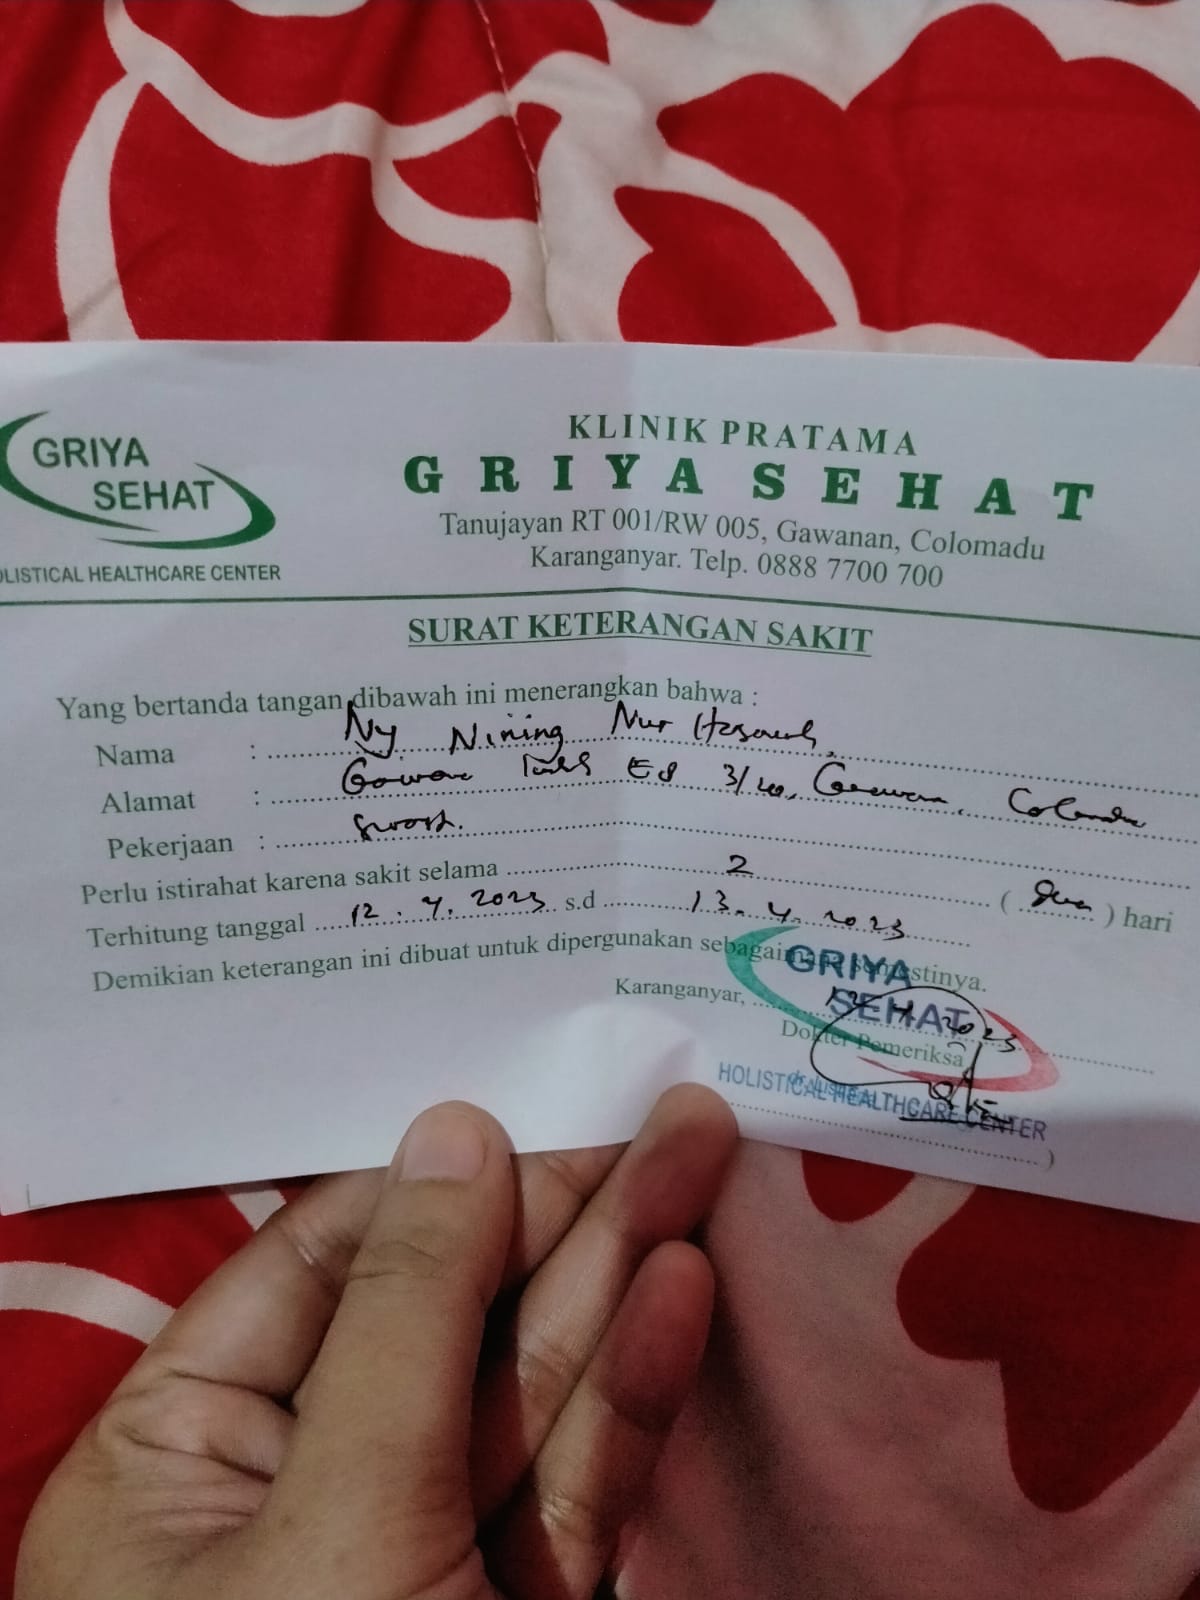 GRIYA
SEHAT
OLISTICAL HEALTHCARE CENTER
KLINIK PRATAMA
GRIYA SEHAT
Tanujayan RT 001/RW 005, Gawanan, Colomadu
Karanganyar. Telp. 0888 7700 700
SURAT KETERANGAN SAKIT
Yang bertanda tangan dibawah ini menerangkan bahwa :
Nama : Ny Nining Nur
Alamat : 3/10,
Pekerjaan :
Perlu istirahat karena sakit selama 2 (dua) hari
Terhitung tanggal 12.4.2023 s.d 13.4.2023
Demikian keterangan ini dibuat untuk dipergunakan sebagaimana semestinya.
Karanganyar, 12 4 2023
Dokter Pemeriksa
GRIYA
SEHAT
HOLISTICAL HEALTHCARE CENTER
)